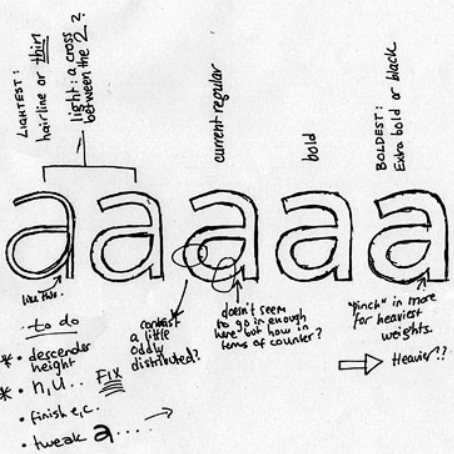 LIGHTEST:
hairline or thin
light: a cross
between the 2 ?
current regular
bold
BOLDEST:
Extra bold or black
a a a a a
like this.
contrast
a little
oddly
distributed?
doesn't seem
to go in enough
here. but how in
terms of counter?
"pinch" in more
for heaviest
weights.
Heavier??
to do
* • descender
height
* • n, u.. FIX
• finish e, c.
• tweak a ....